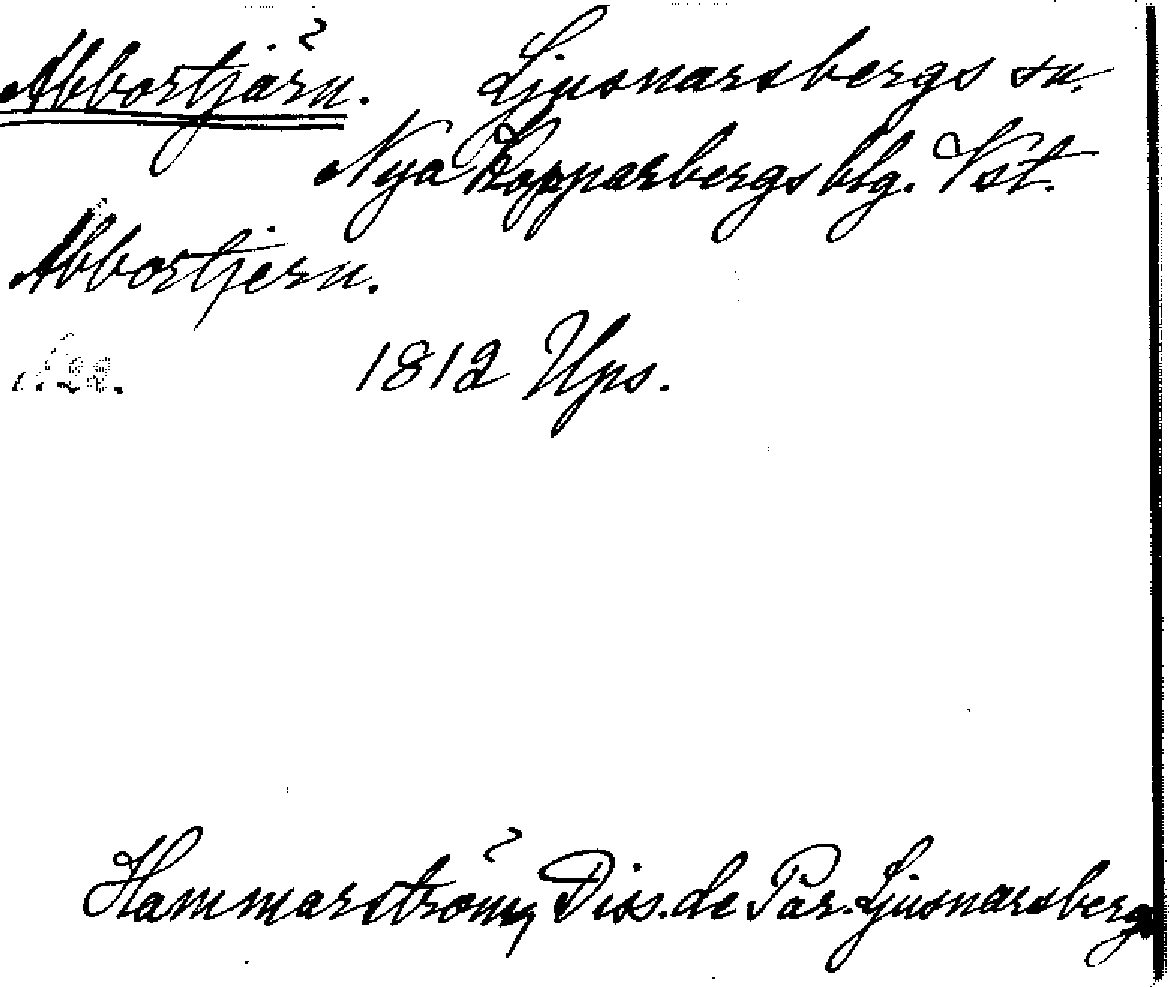 Abbortjärn. Ljusnarsbergs sn.
Nya Kopparbergs blg. Vst.
Abbortjern.
1812 Ups.
Hammarström, Diss. de Par. Ljusnarsberg